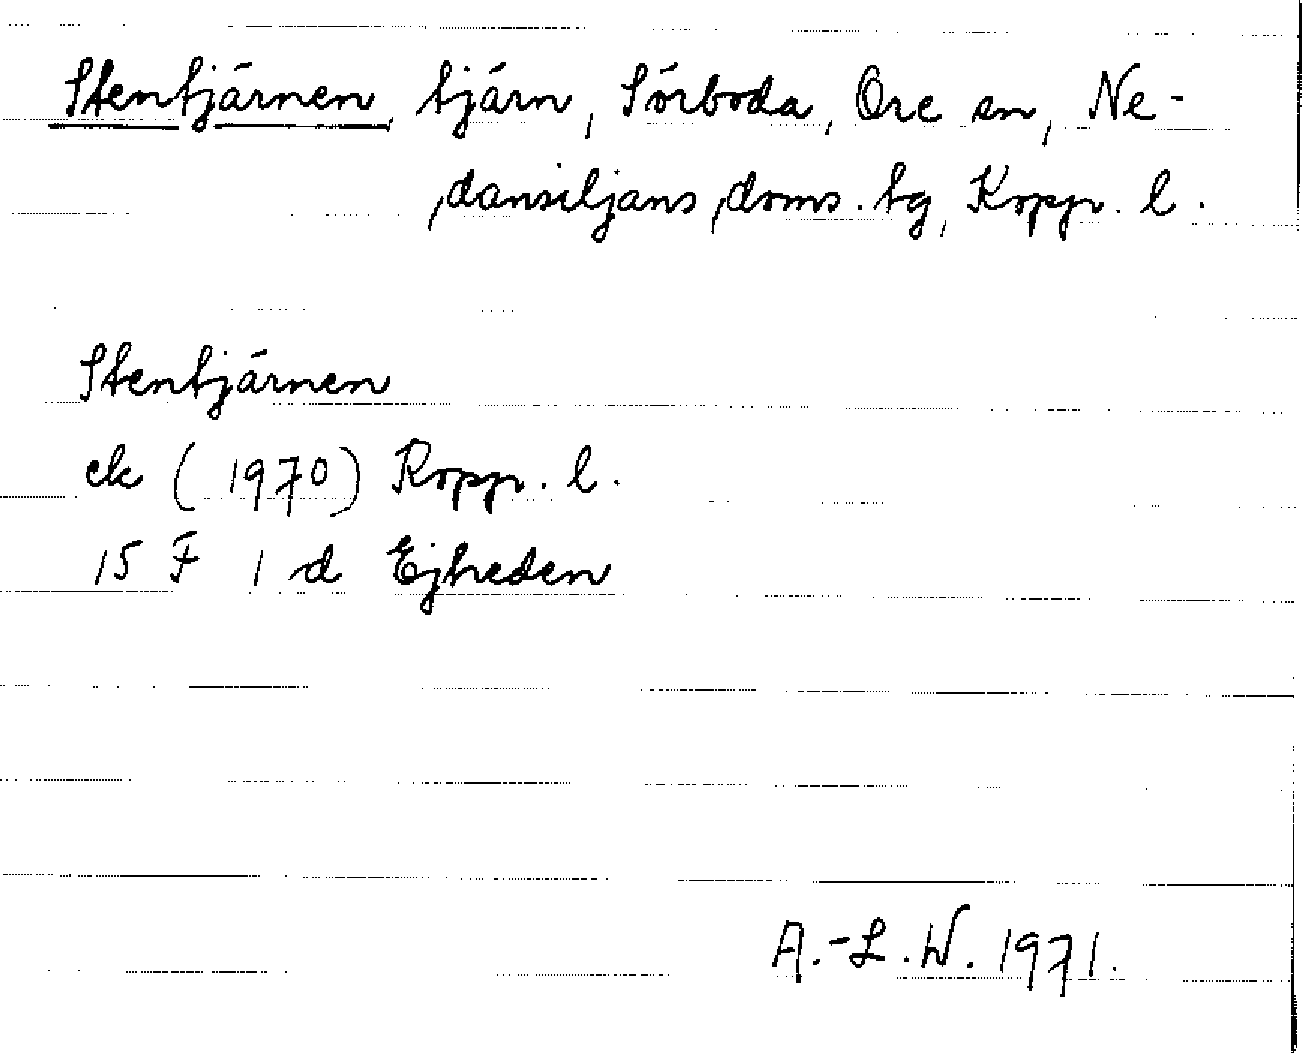 Stentjärnen, tjärn, Sörboda, Ore sn, Ne-
dansiljans doms. tg, Kopp. l.
Stentjärnen
ek (1970) Kopp. l.
15 F 1 d Ejheden
A.-L.W. 1971.